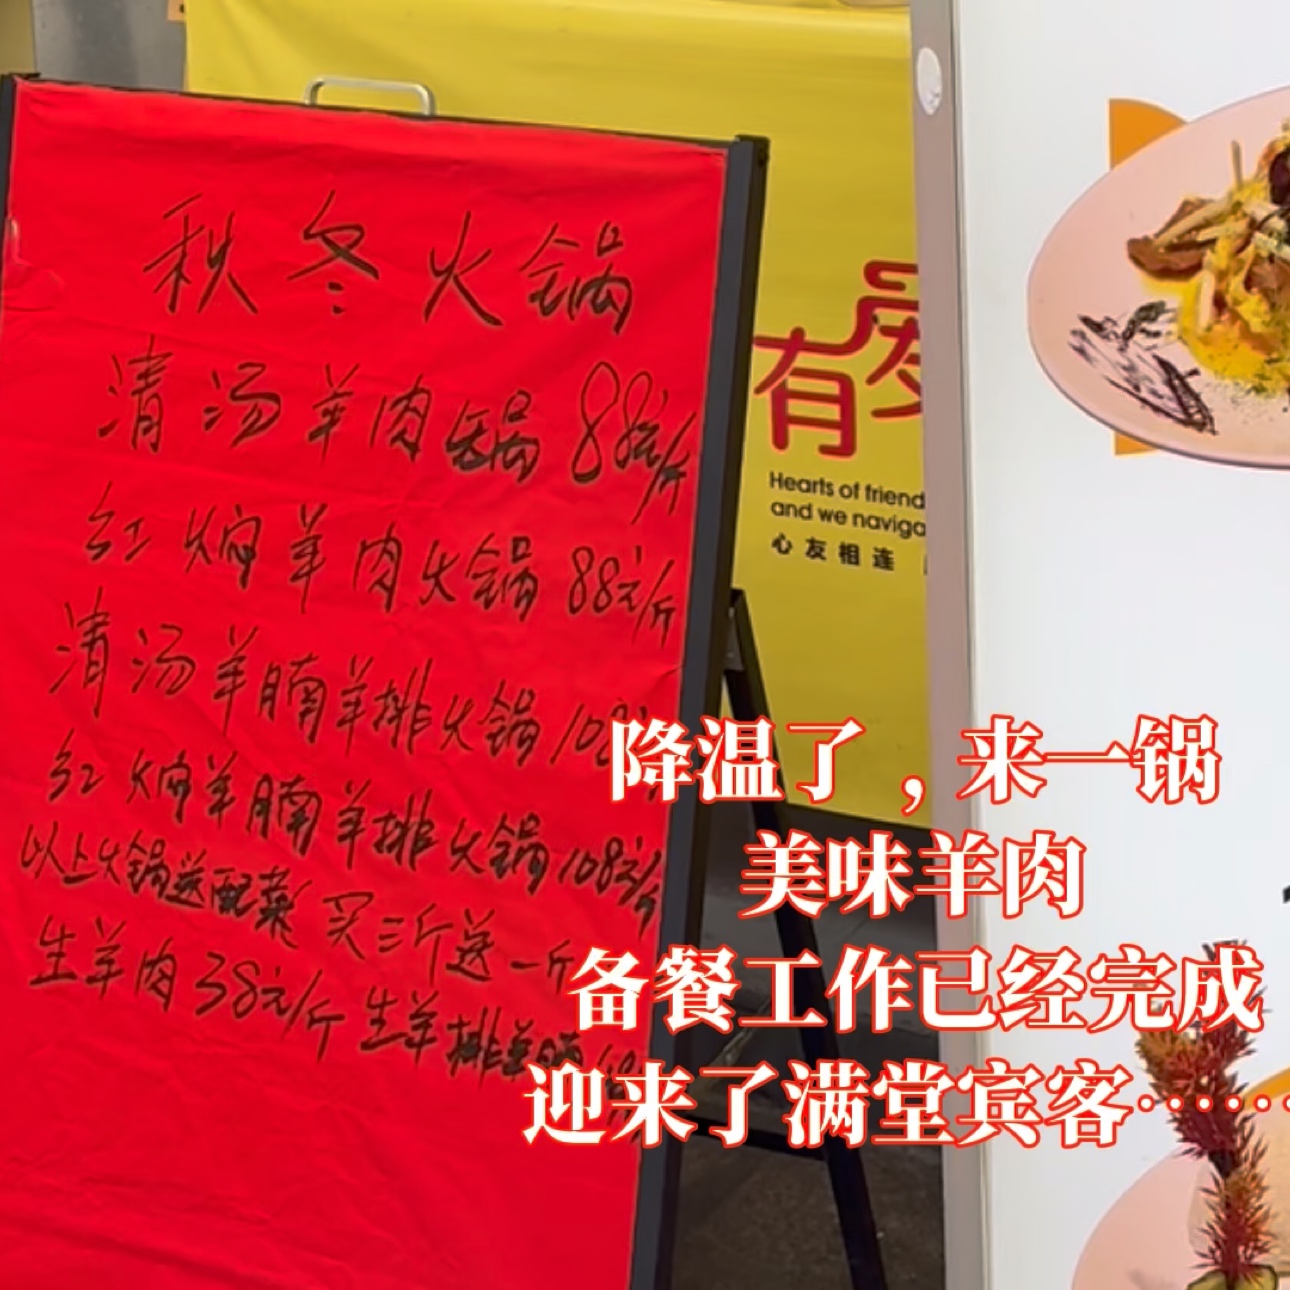 秋冬火锅
清汤羊肉锅 88元/斤
红焖羊肉火锅 88元/斤
清汤羊腩羊排火锅 108
红焖羊腩羊排火锅 108元/斤
以上火锅送配菜 买三斤送一斤
生羊肉 38元/斤 生羊排羊腩
有爱
Hearts of friend
and we naviga
心友相连
降温了，来一锅
美味羊肉
备餐工作已经完成
迎来了满堂宾客……